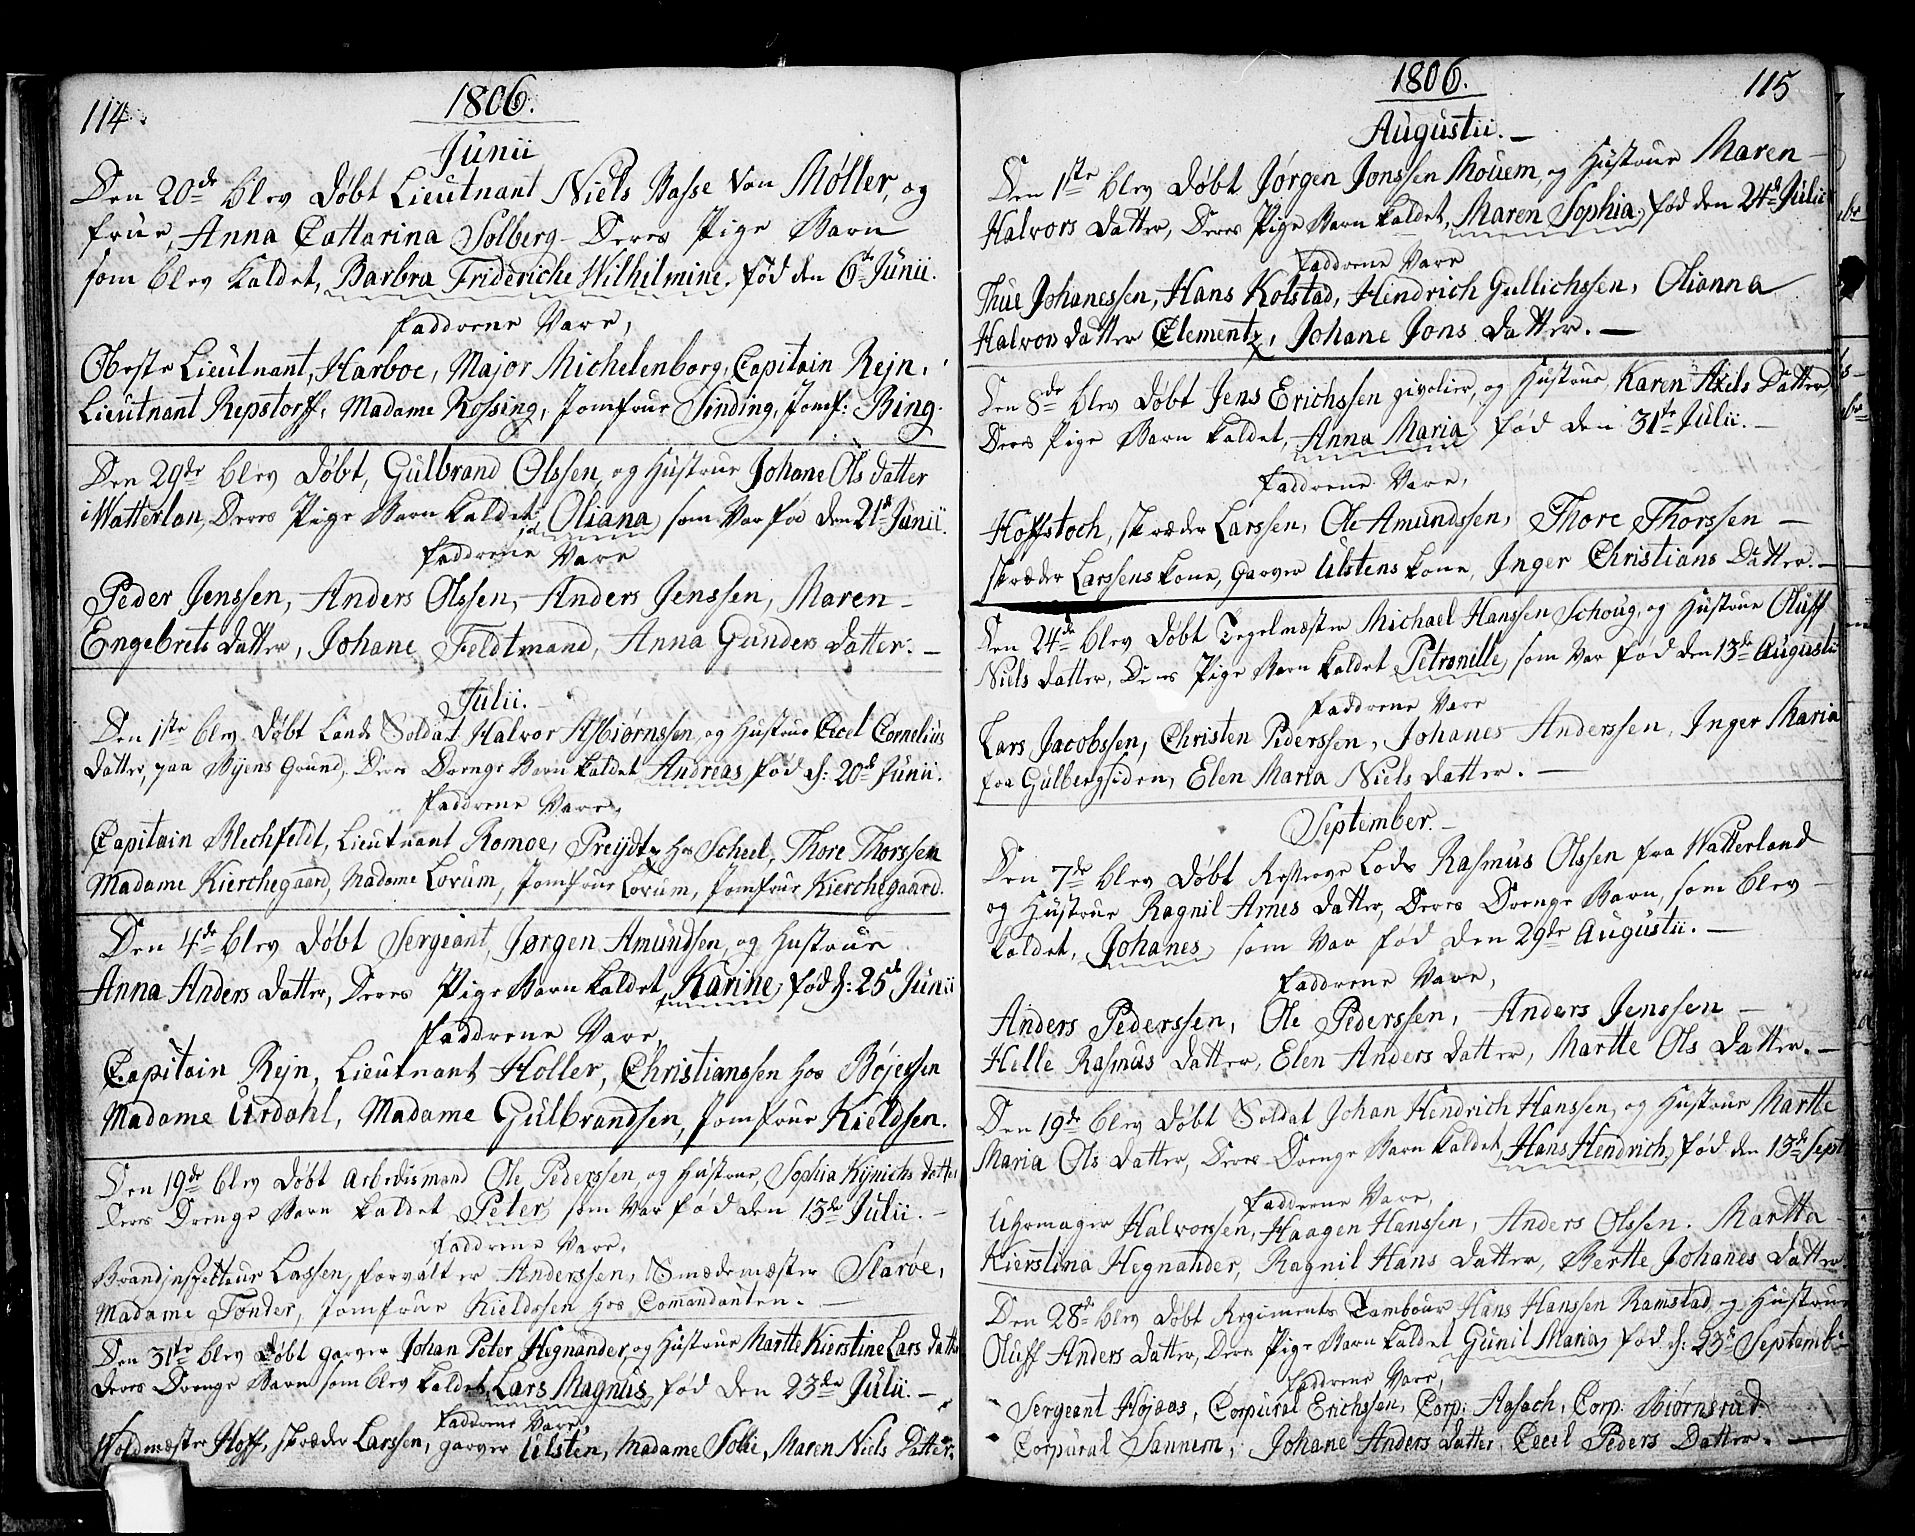 114
1806.
Junii
Den 20de blev døbt Lieutnant Niels Basse Von Møller, og
frue, Anna Cattarina Solberg - Deres Pige Barn
som blev kaldet, Barbra Friderichi Wilhilmine, fød den 6te Junii.
Faddrene Vare,
Oberste Lieutnant, Harboe, Major Michelenborg, Capitain Rejn,
Lieutnant Repstorff, Madame Rossing, Jomfrue Sinding, Jomf: Bing.
Den 29de blev døbt, Gulbrand Olssen, og Hustrue Johane Ols datter
i Watterlan, Deres Pige Barn kaldet Oliana, som Var fød den 21de Junii.
Faddrene Vare
Peder Jenssen, Anders Olssen, Anders Jenssen, Maren -
Engebrets datter, Johane Feldtmand, Anna Gunders datter. -
Julii.
Den 1ste blev døbt Lands Soldat Halvor Asbiørnssen, og Hustrue Cicel Cornelius
datter, paa Byens Grund, Deres Drenge Barn kaldet Andreas fød d: 20de Junii.
Faddrene Vare,
Capitain Blechfeldt, Lieutnant Romoe, Preydtz hos Scheel, Thore Thorssen
Madame Kierchegaard, Madame Lorum, Jomfrue Lorum, Jomfrue Kierchegaard.
Den 4de blev døbt Sergeant, Jørgen Amundsen, og Hustrue
Anna Anders datter, Deres Pige Barn kaldet Karine, fød d: 25de Junii
Faddrene Vare,
Capitain Rejn, Lieutnant Holler, Christianssen hos Bøjessen
Madame Urdahl, Madame Gulbrandsen, Jomfrue Kieldsen.
Den 19de blev døbt Arbedismand Ole Pederssen, og Hustrue, Sophia Kynichs datter
Deres Drenge Barn kaldet Peter, som Var fød den 13de Julii. -
Faddrene Vare,
Brandinspecteur Lassen, forvalter Anderssen, Smædemæster Slarøe,
Madame Tønder, Jomfrue Kieldssen hos Comandanten. -
Den 31te blev døbt garver Johan Peter Hegnander, og Hustrue Martte Kierstine Lars datter
Deres Drenge Barn som blev kaldet, Lars Magnus, fød den 23de Julii. -
Faddrene Vare,
Woldmæster Hoff, skræder Larssen, garver Ulsten, Madame Solie, Maren Niels datter.
1806.
115
Augustii. -
Den 1ste blev døbt Jørgen Jonssen Mouem, og Hustrue Maren -
Halvors datter, Deres Pige Barn kaldet, Maren Sophia, fød den 24de Julii
Faddrene Vare
Thue Johanessen, Hans Kolstad, Hendrich Gullichssen, Olianna
Halvors datter Clementz, Johane Jons datter. -
Den 8de blev døbt Jens Erichssen givolier, og Hustrue Karen Axels Datter,
Deres Pige Barn kaldet, Anna Maria, fød den 31te Julii. -
Faddrene Vare,
Hoffstoch, skræder Larssen, Ole Amundssen, Thore Thorssen -
skræder Larssens kone, garver Ulstens kone, Inger Christians Datter. -
Den 24de blev døbt Tegelmæster Michael Hanssen Schoug, og Hustrue Oluff
Niels datter, Deres Pige Barn kaldet Petronille, som Var fød den 13de Augustii
Faddrene Vare
Lars Jacobssen, Christen Pederssen, Johanes Anderssen, Inger Maria
fra Gulbergsiden, Elen Maria Niels datter. -
September. -
Den 7de blev døbt Lods Rasmus Olssen fra Watterland
og Hustrue Ragnil Arnes datter, Deres Drenge Barn, som blev -
kaldet, Johanes, som Var fød den 29de Augustii. -
Faddrene Vare,
Anders Pederssen, Ole Pederssen, Anders Jenssen -
Helle Rasmus datter, Elen Anders datter, Martte Ols datter. -
Den 19de blev døbt Soldat Johan Hendrich Hanssen, og Hustrue Martte
Maria Ols datter, Deres Drenge Barn kaldet, Hans Hendrich, fød den 13de Sept
Faddrene Vare,
Uhrmager Halvorssen, Haagen Hanssen, Anders Olssen. Martta
Kierstina Hegnander, Ragnil Hans datter, Bertte Johanes datter.
Den 28de blev døbt Regiments Tambour Hans Hanssen Ramstad, og Hustrue
Oluff Anders datter, Deres Pige Barn kaldet Gunil Maria, fød d: 23de Septemb:
Faddrene Vare,
Sergeant Højaas, Corpural Erichssen, Corp: Aasach, Corp: Biørnsrud
Corpural Sannem, Johane Anders datter, Cecel Peders Datter. -